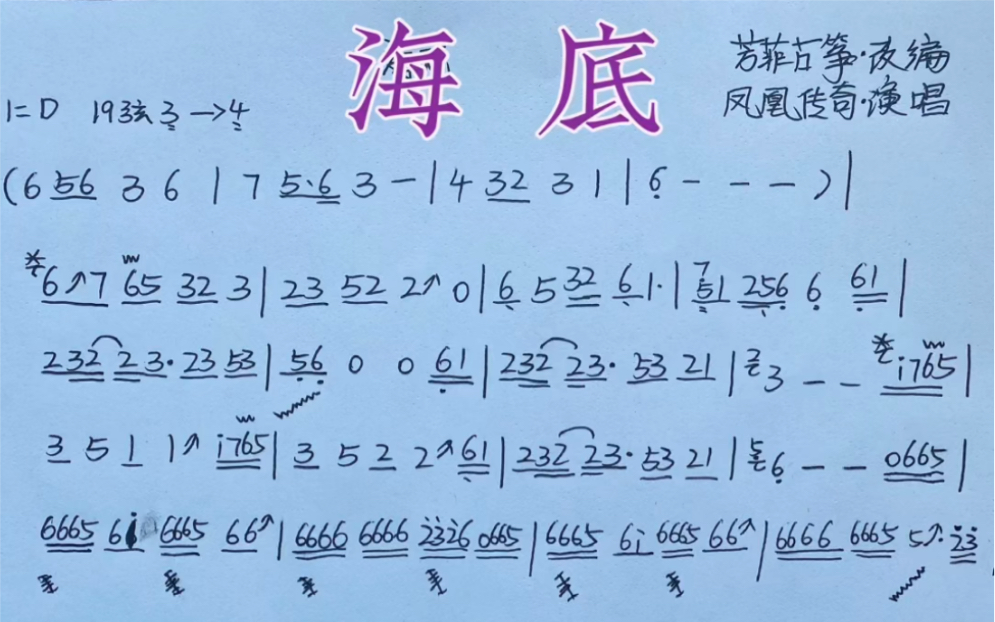 海底
芳菲古筝·改编
1=D 19弦3→4 凤凰传奇·演唱
(6 56 3 6 | 7 5·6 3 — | 4 32 3 1 | 6 — — — ) |
6↗7 65 32 3 | 23 52 2↗ 0 | 6 5 32 6 1· | 7 51 256 6 61 |
232 23· 23 53 | 56 0 0 61 | 232 23· 53 21 | 2 3 — — i765 |
3 5 1 1↗ i765 | 3 5 2 2↗ 61 | 232 23· 53 21 | 5 6 — — 0665 |
6665 6i 6665 66↗ | 6666 6666 i3i6 0665 | 6665 6i 6665 66↗ | 6666 6665 5↗· 23 |